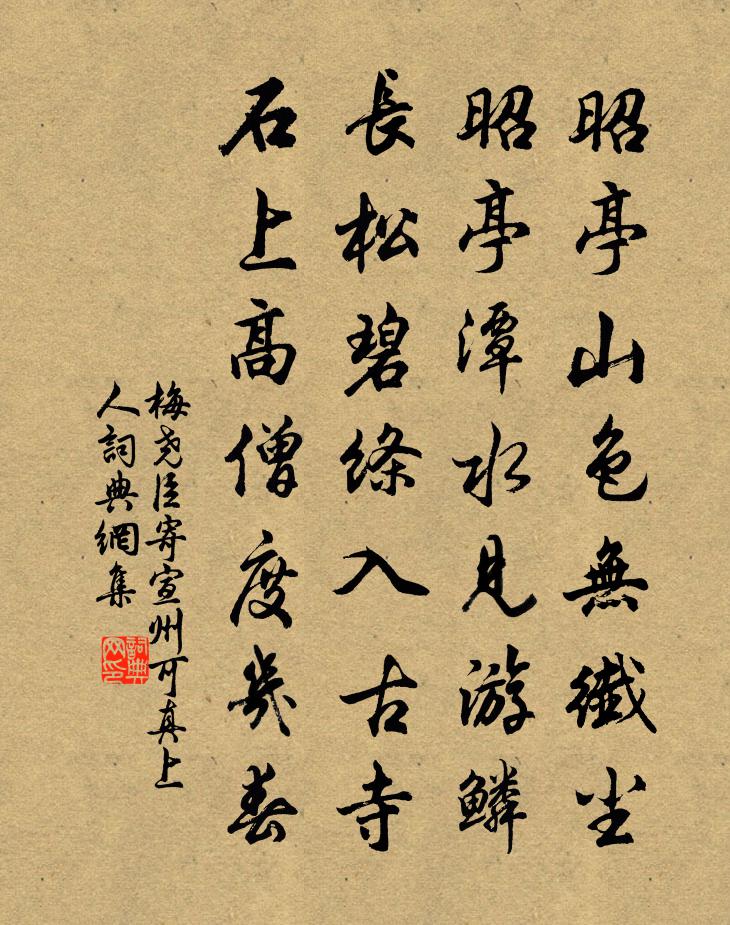 昭亭山色無纖尘
昭亭潭水見游鱗
長松碧絛入古寺
石上高僧度幾春
梅尧臣寄宣州可真上
人詞典網集
詞典
网印